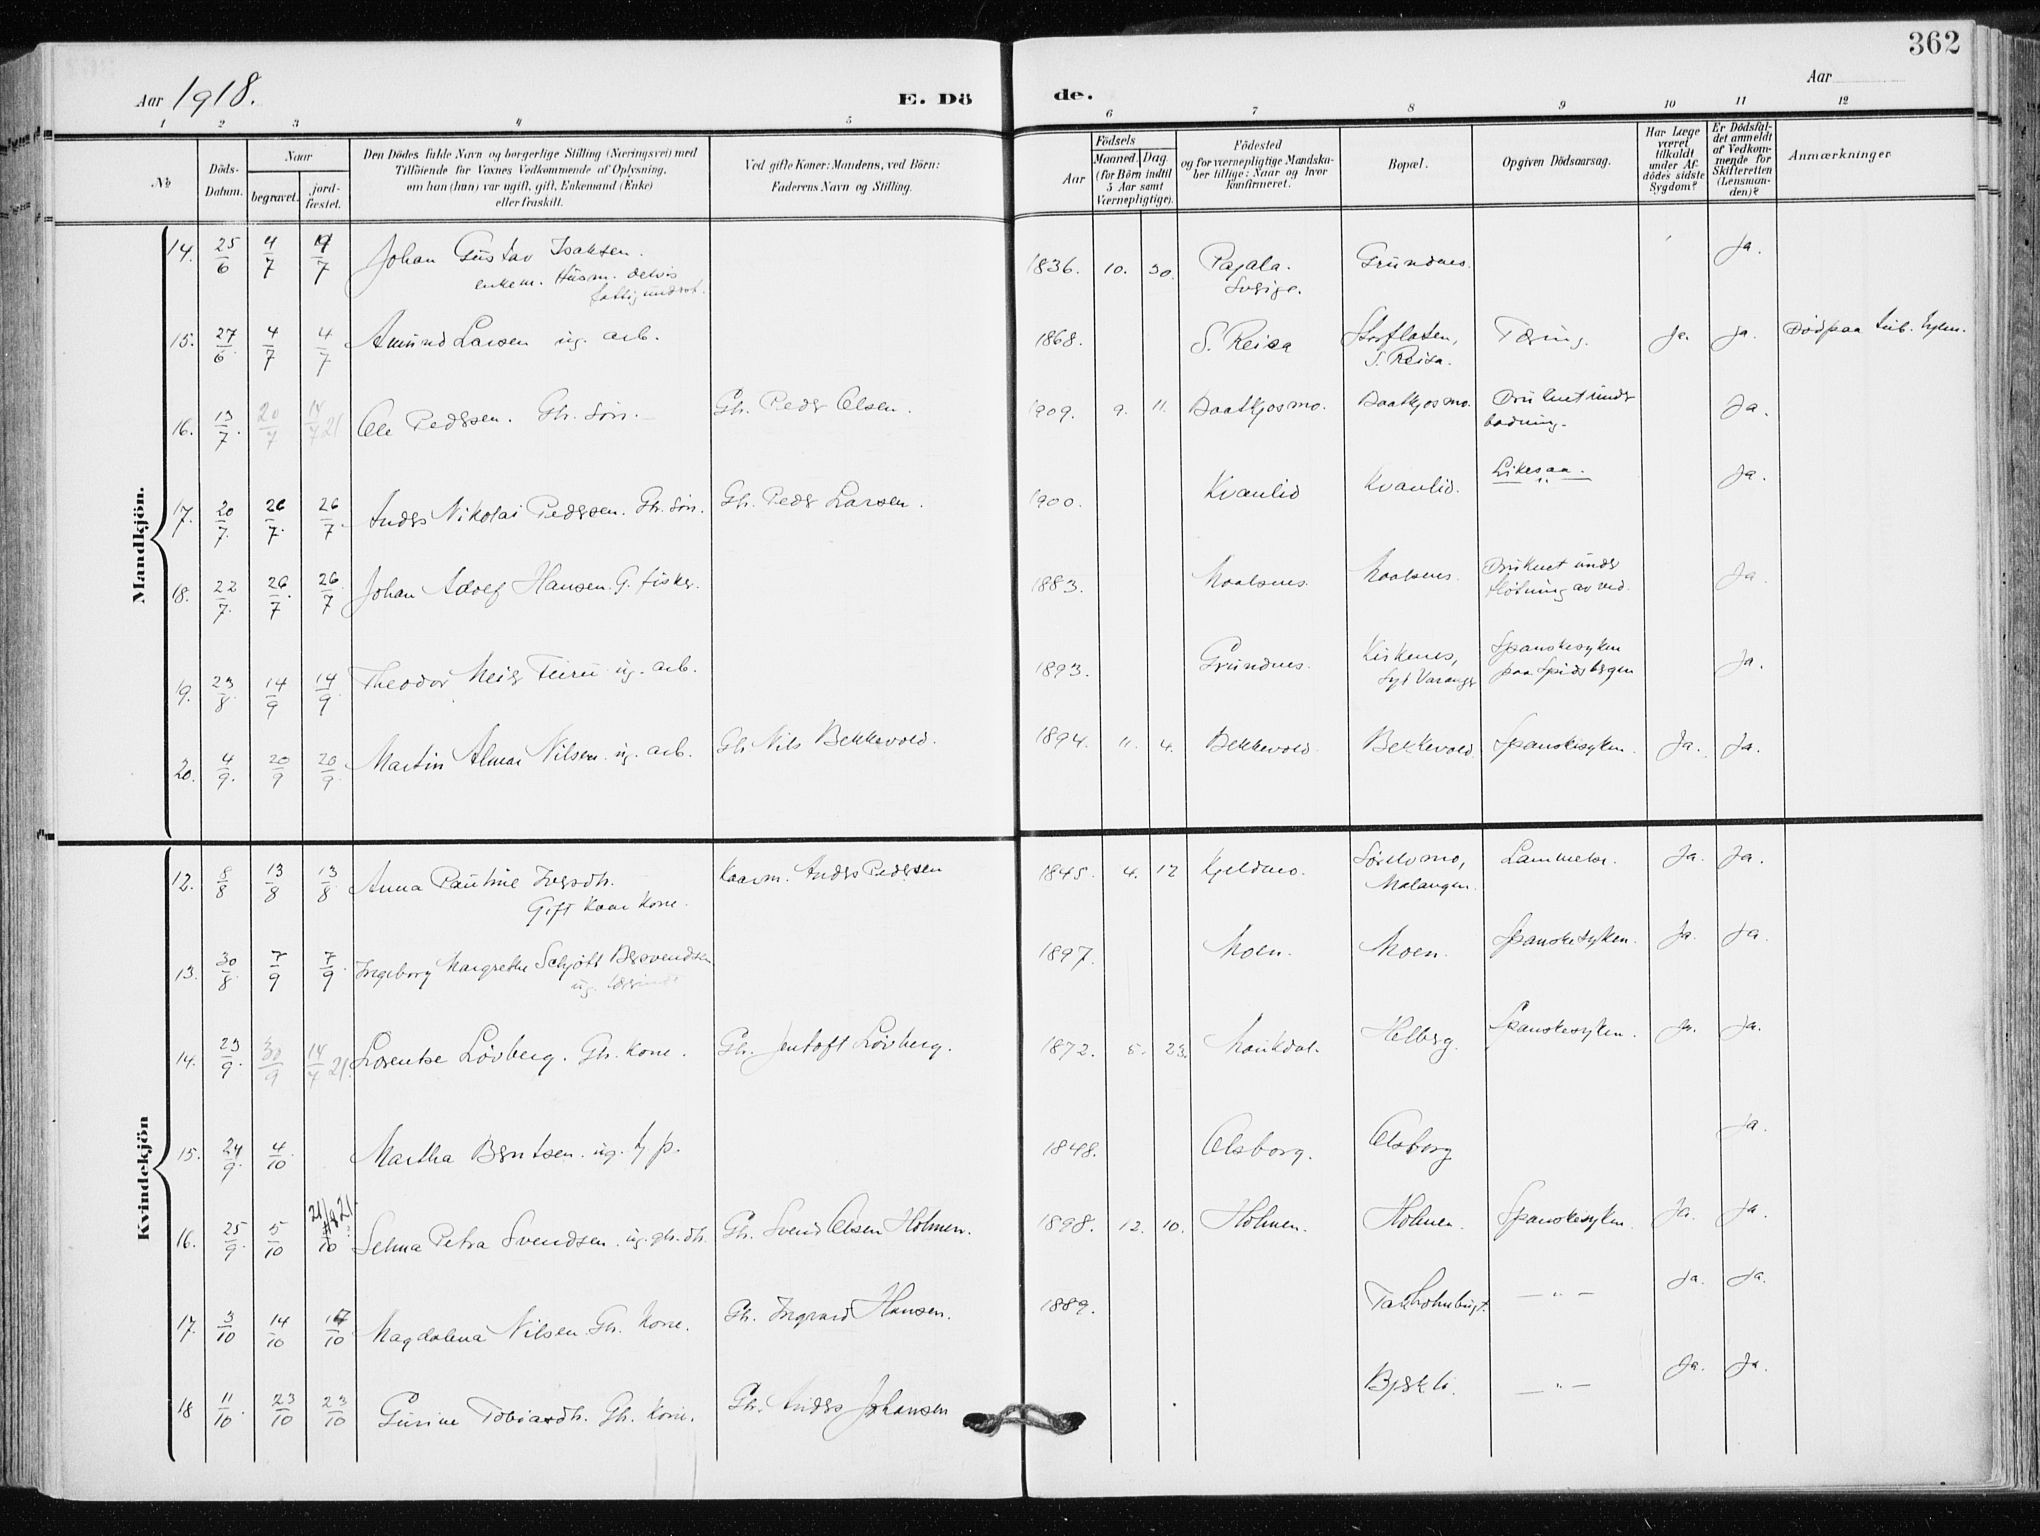 362
Aar 1918.
E. Dö
de.
Aar
1 2 3 4 5 6 7 8 9 10 11 12
No
Döds-Datum.
Naar
begravet.
jord-fæstet.
Den Dödes fulde Navn og borgerlige Stilling (Næringsvei) med
Tilföiende for Voxnes Vedkommende af Oplysning,
om han (hun) var ugift, gift, Enkemand (Enke)
eller fraskilt.
Ved gifte Koner: Mandens, ved Börn:
Faderens Navn og Stilling.
Födsels
Aar
Maaned. Dag
(for Börn indtil
5 Aar samt
Værnepligtige).
Födested
og for værnepligtige Mandska-
ber tillige: Naar og hvor
konfirmeret.
Bopæl.
Opgiven Dödsaarsag.
Har Læge
været
tilkaldt
under Af-
dödes sidste
Sygdom?
Er Dödsfal-
det anmeldt
af Vedkom-
mende for
Skifteretten
(Lensman-
den)?
Anmærkninger
Mandkjön.
14. 25/6 4/7 Johan Gustav Isaksen. 1836. 10. 30. Pajala. Grundnes. Ja.
enkem. Husm. delvis Sverige.
fattigunderst.
15. 27/6 4/7 4/7 Amund Larsen ug. arb. 1868. S. Reisa Storfloten, Tæring. Ja. Ja.
S. Reisa.
16. 13/7 20/7 14/7 21 Ole Pedersen. Gb. Søn. Gb. Peder Olsen. 1909. 9. 11. Baatkjosmo. Baatkjosmo. Druknet under Ja.
badning.
17. 20/7 26/7 26/7 Anders Nikolai Pedersen. Gb. Søn. Gb. Peder Larsen. 1900. Kvanlid Kvanlid. Likesaa. Ja.
18. 22/7 26/7 26/7 Johan Adolf Hansen. G. fisker. 1883. Maalsnes. Maalsnes. Druknet under Ja.
fløtning av ved.
19. 23/8 14/9 14/9 Theodor ug. arb. 1893. Grundnes. Kirkenes, Spanskesyken Ja.
Syd Varanger paa Spidsbergen
20. 4/9 20/9 20/9 Martin Almar Nilsen. ug. arb. Gb. Nils Bekkevold. 1894. 11. 4. Bekkevold. Bekkevold. Spanskesyken. Ja. Ja.
Kvindekjön
12. 8/8 13/8 13/8 Anna Pauline Iversdtr. Kaarm. Anders Pedersen 1845. 4. 12 Kjeldmo. Sørelvmo, Lammelse. Ja. Ja.
Gift Kaar Kone. Malangen.
13. 30/8 7/9 7/9 Ingeborg Margrethe Schjøtt Bersvendsen 1897. Moen. Moen. Spanskesyken. Ja. Ja.
ug.
14. 23/9 30/9 14/7 21. Lorentse Løvberg. Gb. kone. Gb. Jentoft Løvberg. 1872. 5. 23. Maukdal. Helberg. Spanskesyken. Ja. Ja.
15. 24/9 4/10 Martha Berntsen. ug. 1848. Olsborg. Olsborg Ja.
16. 25/9 5/10 Selma Petra Svendsen. ug. gb. dtr. Gb. Svend Olsen Holmen. 1898. 12. 10. Holmen. Holmen. Spanskesyken. Ja. Ja.
17. 3/10 14/10 Magdalena Nilsen. Gb. Kone. Gb. Ingvard Hansen. 1889. — " — Ja. Ja.
18 11/10 23/10 23/10 Gurine Tobiasdtr. Gb. Kone. Gb. Anders Johansen — " — Ja. Ja.